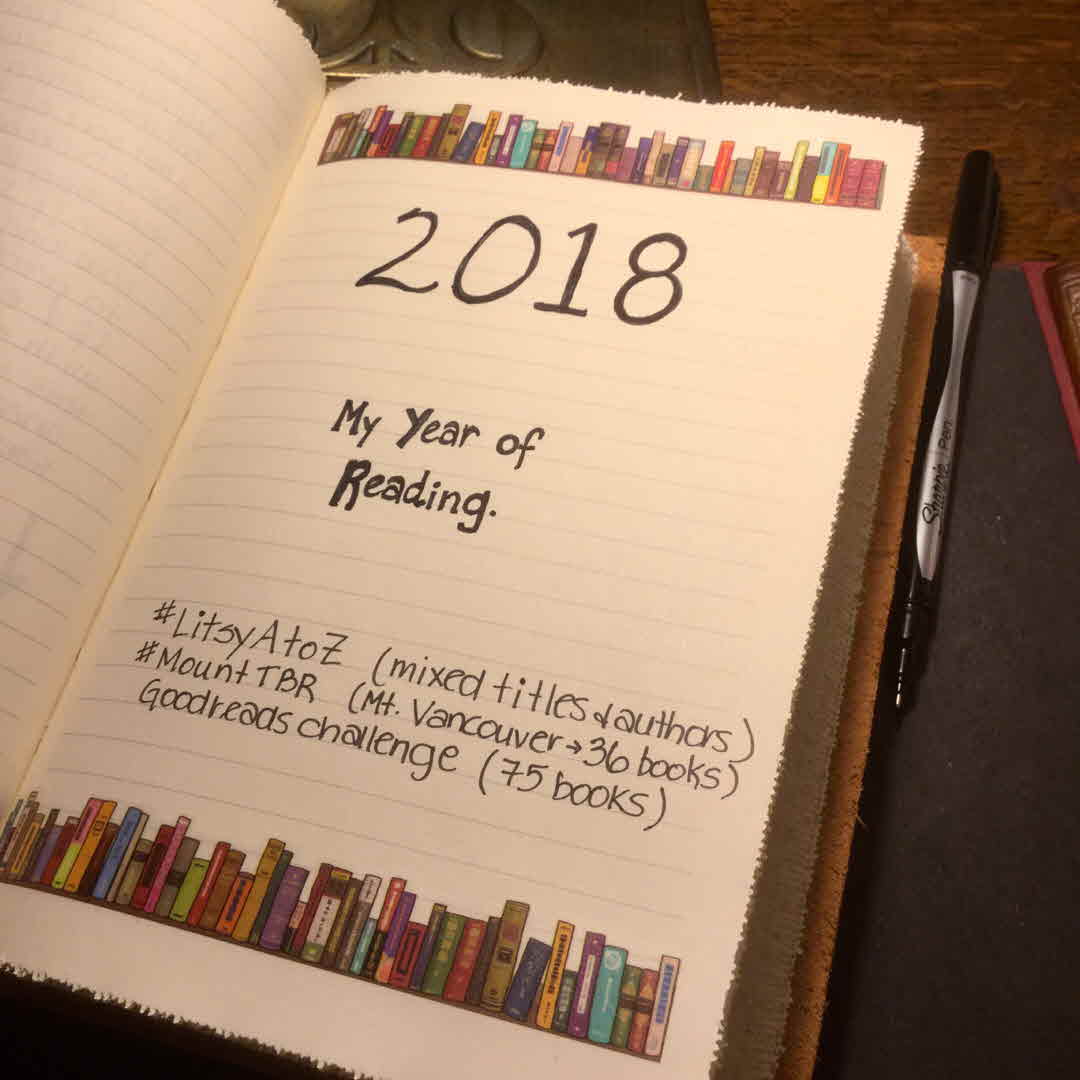 2018
My Year of
Reading.
#LitsyAtoZ (mixed titles & authors)
#MountTBR (Mt. Vancouver → 36 books)
Goodreads challenge (75 books)
Sharpie Pen